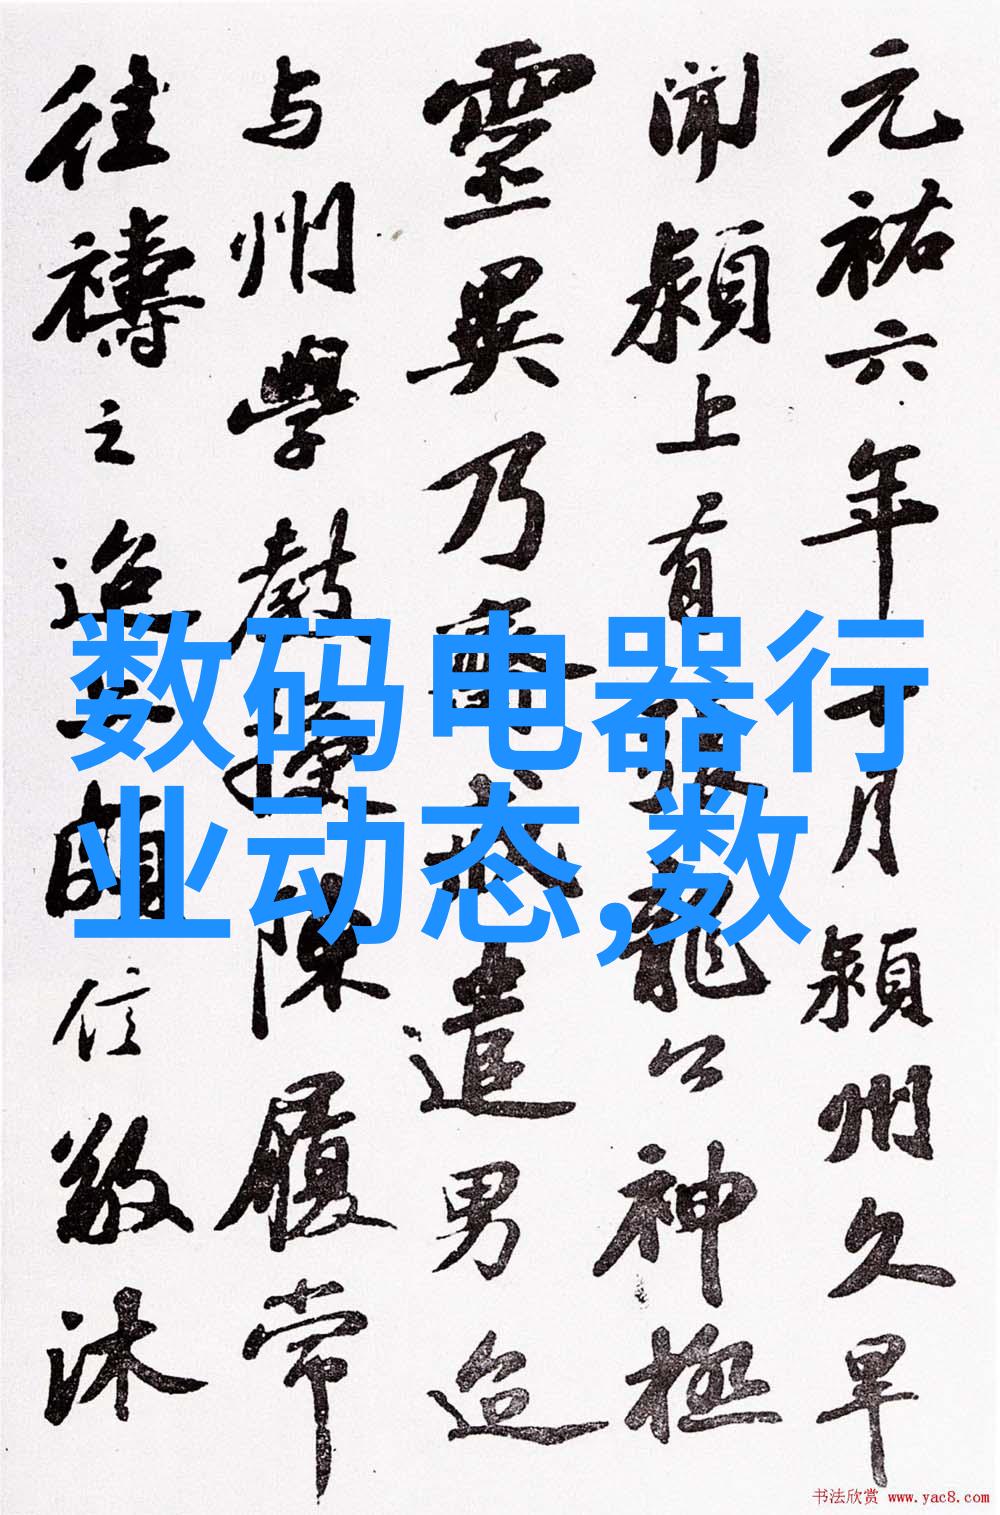 元祐六年十月潁州久旱
聞潁上有張龍公神極
靈異乃齋戒遣男迨
与州學教授陳履常
往禱之迨亦頗信敬沐
数码电器行
业动态,数
书法欣赏 www.yac8.com